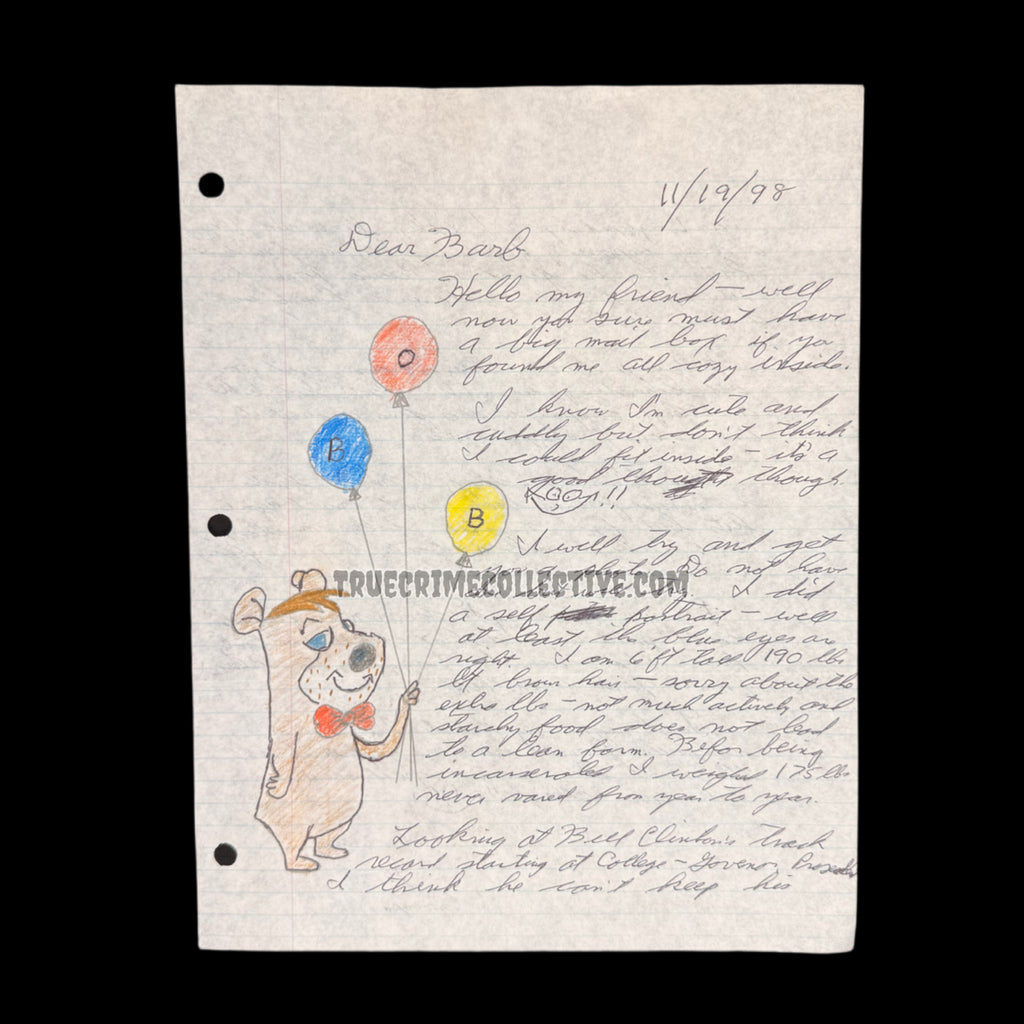 11/19/98
Dear Barb
Hello my friend – well
now you sure must have
a big mail box if you
found me all cozy inside.
I know I'm cute and
cuddly but don't think
I could fit inside – it's a
good though.
!!
O
B
B
I will try and get
you a photo. Do not have
TRUECRIMECOLLECTIVE.COM
I did
a self portrait – well
at least the blue eyes are
right. I am 6 ft tall 190 lbs
lt brown hair – sorry about the
extra lbs – not much activity and
starchy food does not lead
to a lean form. Befor being
incarserated I weighed 175 lbs
never varied from year to year.
Looking at Bill Clinton's track
record starting at College – Govenor,
I think he can't keep his